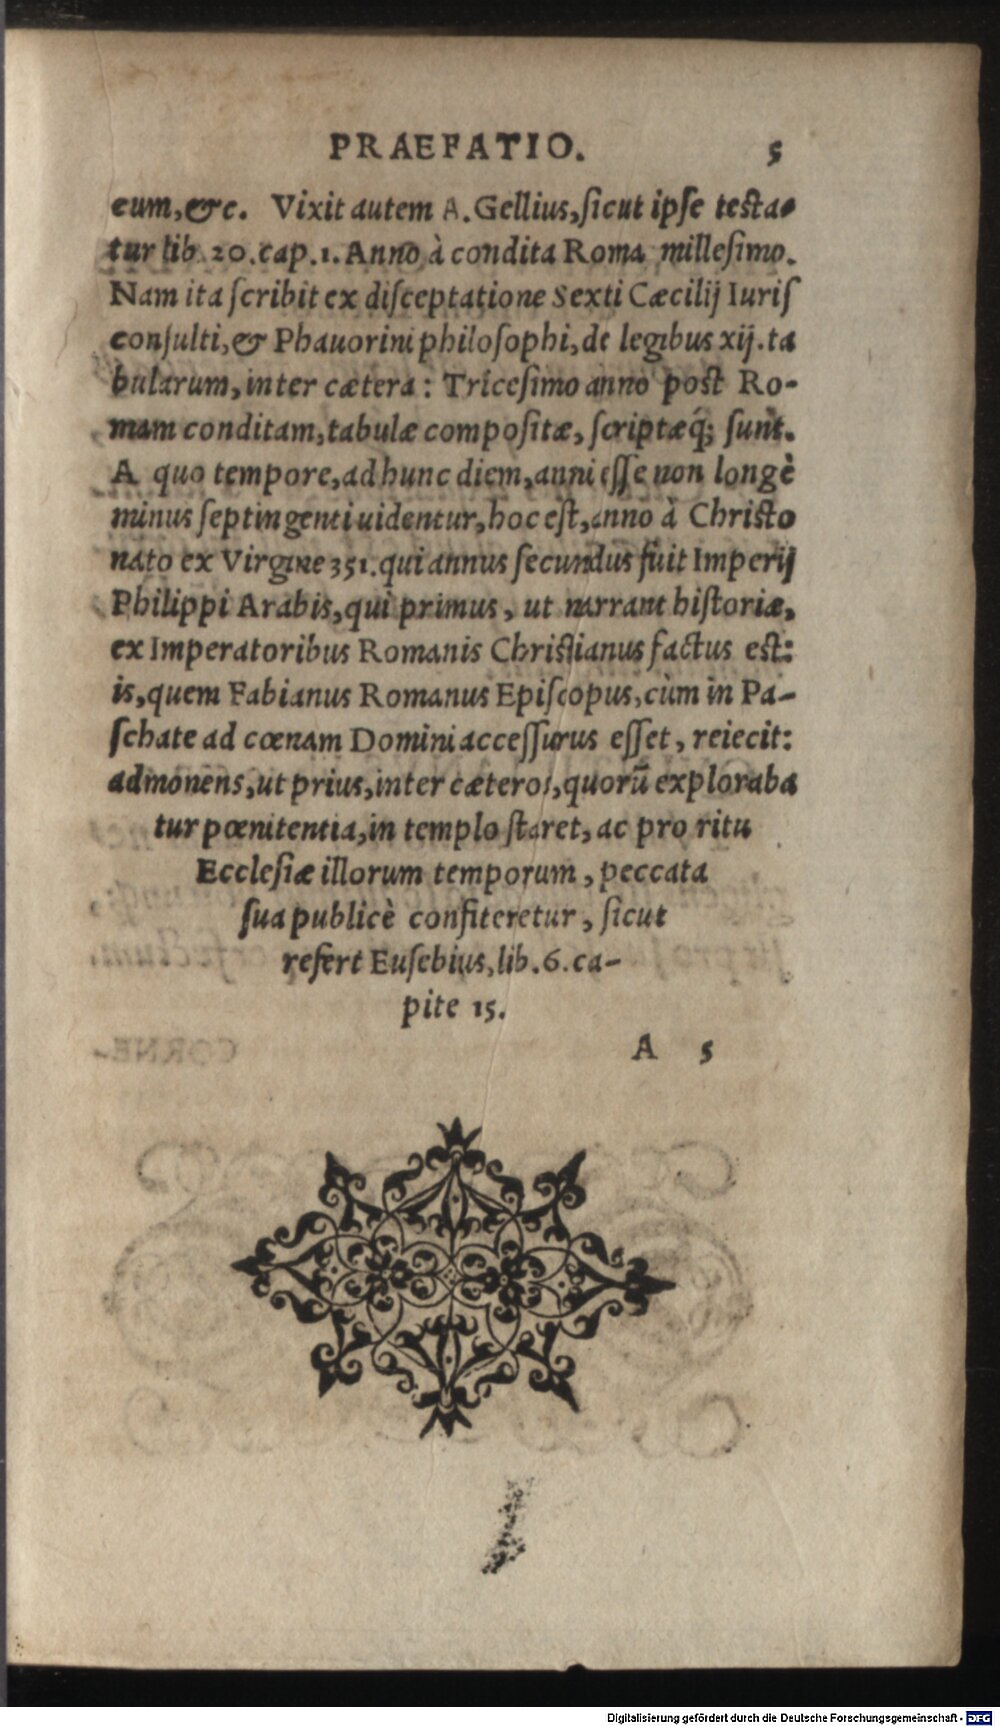 PRAEFATIO. 5
eum, &c. Vixit autem A. Gellius, sicut ipse testa-
tur lib. 20. cap. 1. Anno à condita Roma millesimo.
Nam ita scribit ex disceptatione Sexti Cæcilij Iuris
consulti, & Phauorini philosophi, de legibus xij. ta
bularum, inter cætera: Tricesimo anno post Ro-
mam conditam, tabulæ compositæ, scriptæq́; sunt.
A quo tempore, ad hunc diem, anni esse non longè
minus septingenti uidentur, hoc est, anno à Christo
nato ex Virgine 351. qui annus secundus fuit Imperij
Philippi Arabis, qui primus, ut narrant historiæ,
ex Imperatoribus Romanis Christianus factus est:
is, quem Fabianus Romanus Episcopus, cùm in Pa-
schate ad cœnam Domini accessurus esset, reiecit:
admonens, ut prius, inter cæteros, quorũ exploraba
tur pœnitentia, in templo staret, ac pro ritu
Ecclesiæ illorum temporum, peccata
sua publicè confiteretur, sicut
refert Eusebius, lib. 6. ca-
pite 15.
A 5
Digitalisierung gefördert durch die Deutsche Forschungsgemeinschaft - DFG